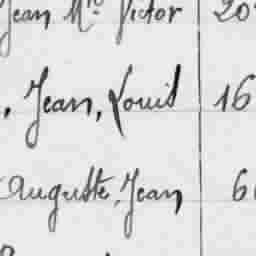 Jean Mie Victor 20
, Jean, Louis 16
Auguste, Jean 6